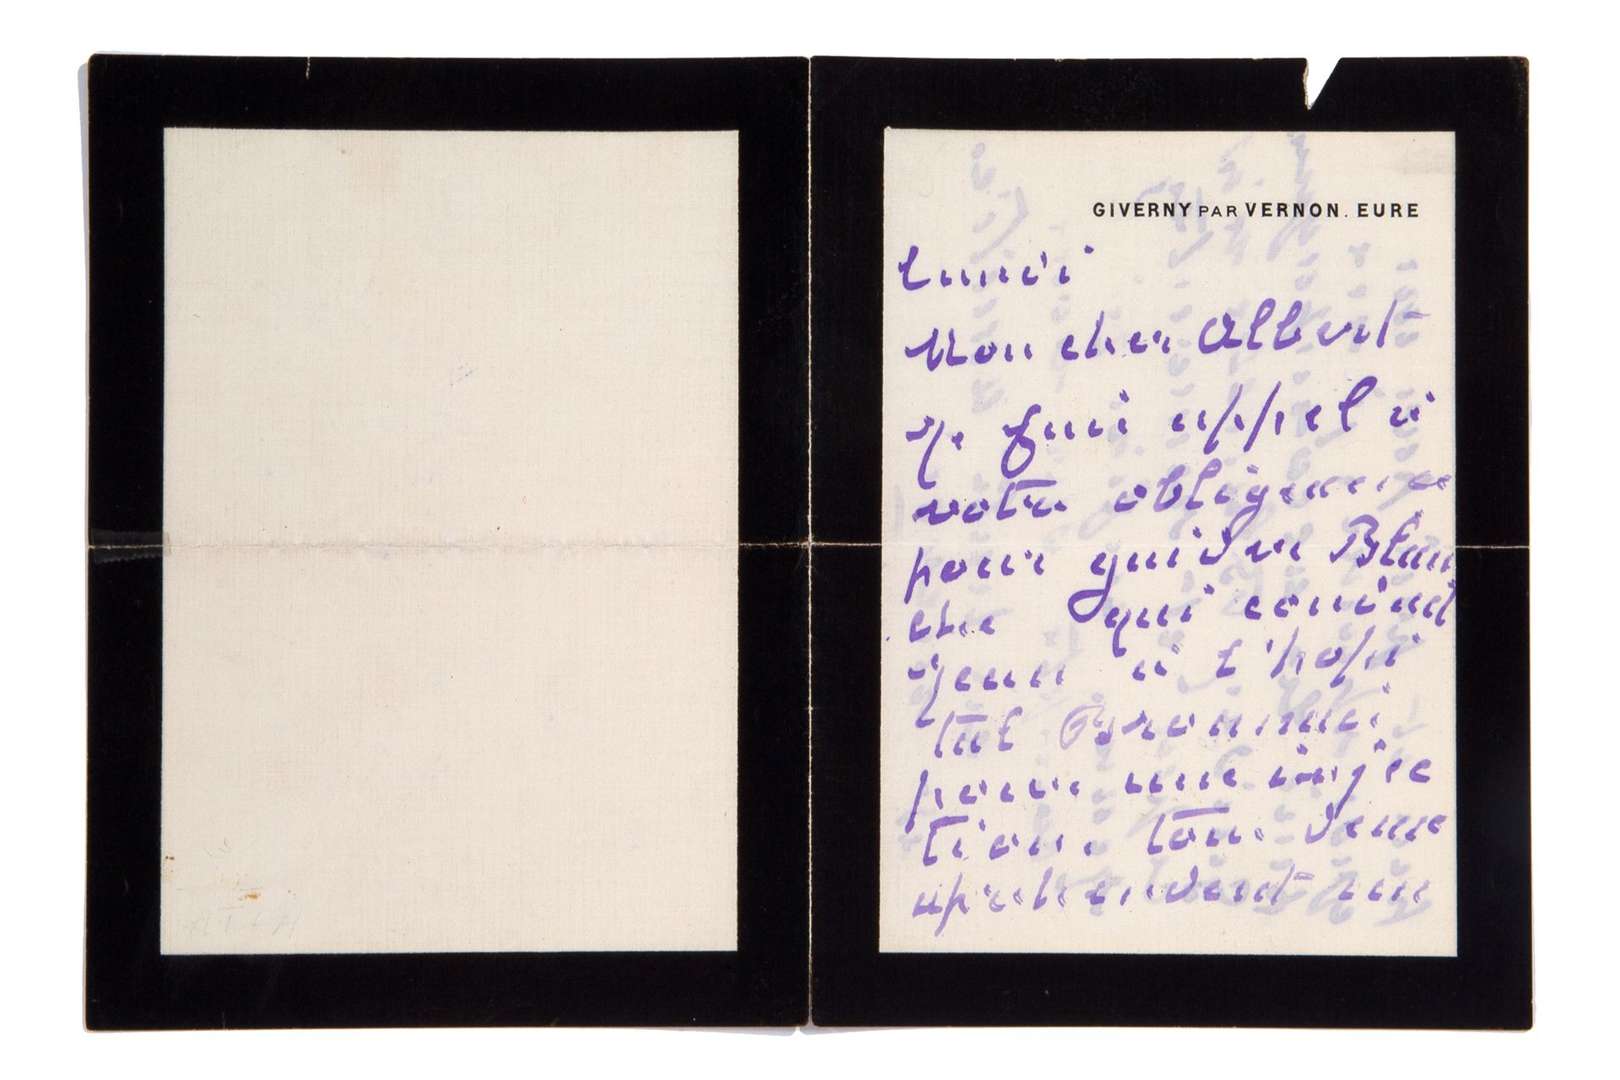 GIVERNY PAR VERNON. EURE
Lundi
Mon cher Albert
Je fais appel à
votre obligeance
pour guider Blan
che qui conduit
Jean à l'hopi
tal
pour une injec
tion. tous deux
aprehendent un